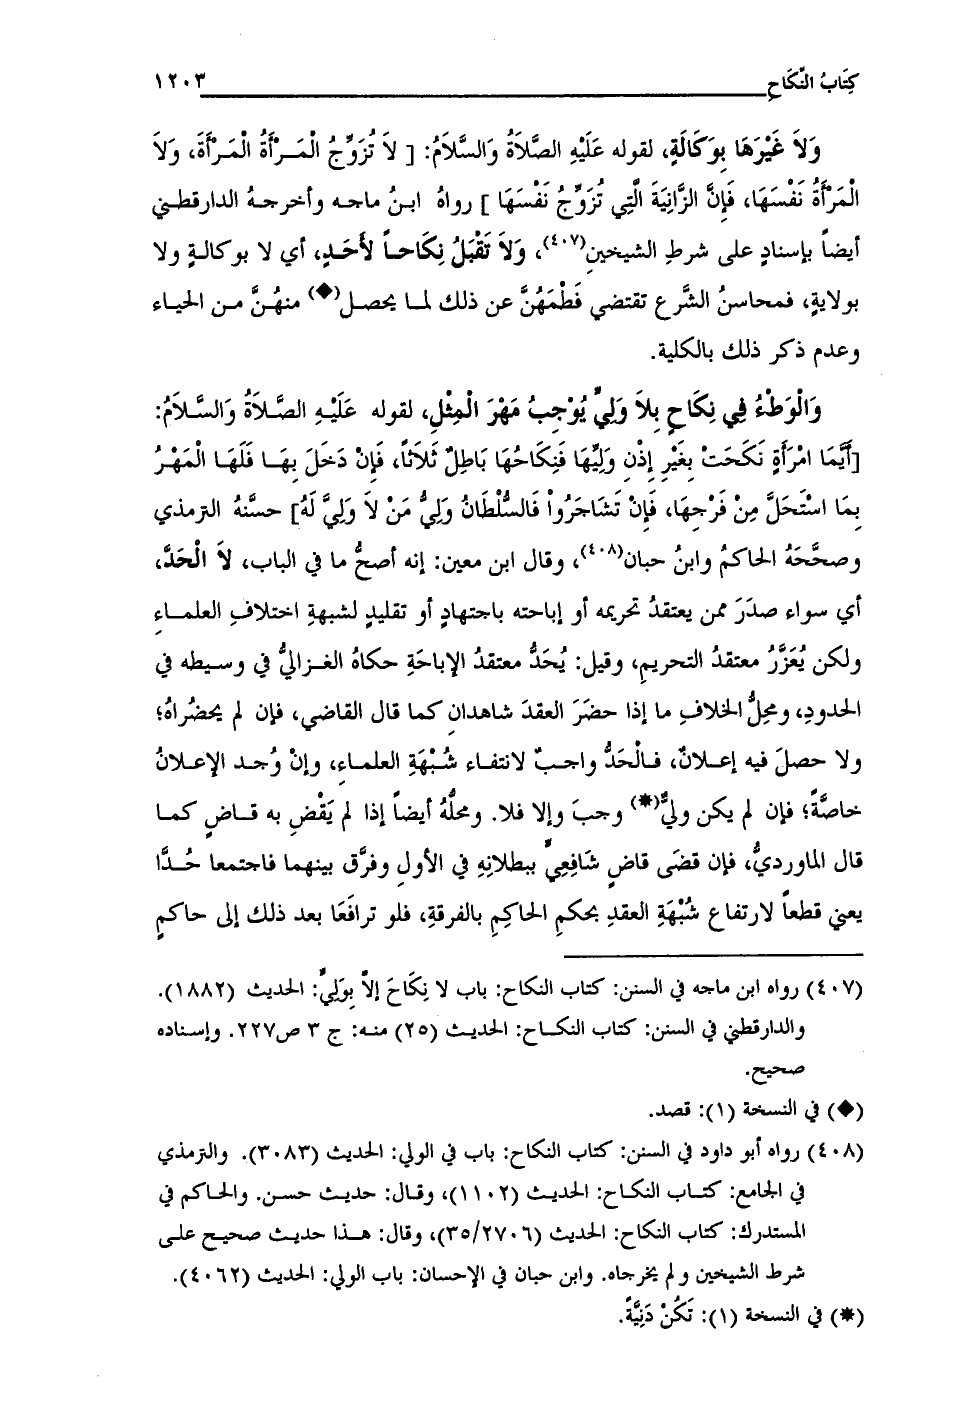 كِتَابُ النِّكَاحِ ١٢٠٣
وَلاَ غَيْرَهَا بِوَكَالَةٍ، لقوله عَلَيْهِ الصَّلاَةُ وَالسَّلاَمُ: [ لاَ تُزَوِّجُ الْمَرْأَةُ الْمَرْأَةَ، وَلاَ
الْمَرْأَةُ نَفْسَهَا، فَإِنَّ الزَّانِيَةَ الَّتِي تُزَوِّجُ نَفْسَهَا ] رواهُ ابنُ ماجه وأخرجهُ الدارقطني
أيضاً بإسنادٍ على شرطِ الشيخينِ(٤٠٧)، وَلاَ تَقْبَلُ نِكَاحاً لأَحَدٍ، أي لا بوكالةٍ ولا
بولايةٍ، فمحاسنُ الشَّرع تقتضي فَطْمَهُنَّ عن ذلك لما يحصل(◆) منهُنَّ من الحياء
وعدم ذكر ذلك بالكلية.
وَالْوَطْءُ فِي نِكَاحٍ بِلاَ وَلِيٍّ يُوْجِبُ مَهْرَ الْمِثْلِ، لقوله عَلَيْهِ الصَّلاَةُ وَالسَّلاَمُ:
[أَيَّمَا امْرَأَةٍ نَكَحَتْ بِغَيْرِ إِذْنِ وَلِيِّهَا فَنِكَاحُهَا بَاطِلٌ ثَلاَثاً، فَإِنْ دَخَلَ بِهَا فَلَهَا الْمَهْرُ
بِمَا اسْتَحَلَّ مِنْ فَرْجِهَا، فَإِنْ تَشَاجَرُواْ فَالسُّلْطَانُ وَلِيُّ مَنْ لاَ وَلِيَّ لَهُ] حسَّنهُ الترمذي
وصحَّحَهُ الحاكمُ وابنُ حبان(٤٠٨)، وقال ابن معين: إنه أصحُّ ما في الباب، لاَ الْحَدَّ،
أي سواء صدَرَ ممن يعتقدُ تحريمه أو إباحته باجتهادٍ أو تقليدٍ لشبهةِ اختلافِ العلماءِ
ولكن يُعَزَّرُ معتقدُ التحريمِ، وقيل: يُحَدُّ معتقدُ الإباحَةِ حكاهُ الغزاليُّ في وسيطه في
الحدودِ، ومحِلُّ الخلافِ ما إذا حضَرَ العقدَ شاهدانِ كما قال القاضي، فإن لم يحضُراهُ؛
ولا حصلَ فيه إعلانٌ، فالْحَدُّ واجبٌ لانتفاء شُبْهَةِ العلماءِ، وإنْ وُجد الإعلانُ
خاصَّةً؛ فإن لم يكن وليٌّ(*) وجبَ وإلا فلا. ومحلُّهُ أيضاً إذا لم يَقْضِ به قاضٍ كما
قال الماورديُّ، فإن قضَى قاضٍ شَافِعِيٌّ ببطلانِهِ في الأولِ وفرَّق بينهما فاجتمعا حُدَّا
يعني قطعاً لارتفاع شُبْهَةِ العقدِ بحكمِ الحاكِمِ بالفرقةِ، فلو ترافَعَا بعد ذلك إلى حاكمٍ
(٤٠٧) رواه ابن ماجه في السنن: كتاب النكاح: باب لا نِكَاحَ إلاَّ بِوَلِيٍّ: الحديث (١٨٨٢).
والدارقطني في السنن: كتاب النكاح: الحديث (٢٥) منه: ج ٣ ص٢٢٧. وإسناده
صحيح.
(◆) في النسخة (١): قصد.
(٤٠٨) رواه أبو داود في السنن: كتاب النكاح: باب في الولي: الحديث (٣٠٨٣). والترمذي
في الجامع: كتاب النكاح: الحديث (١١٠٢)، وقال: حديث حسن. والحاكم في
المستدرك: كتاب النكاح: الحديث (٣٥/٢٧٠٦)، وقال: هذا حديث صحيح على
شرط الشيخين ولم يخرجاه. وابن حبان في الإحسان: باب الولي: الحديث (٤٠٦٢).
(*) في النسخة (١): تَكُنْ دَنِيَّةً.